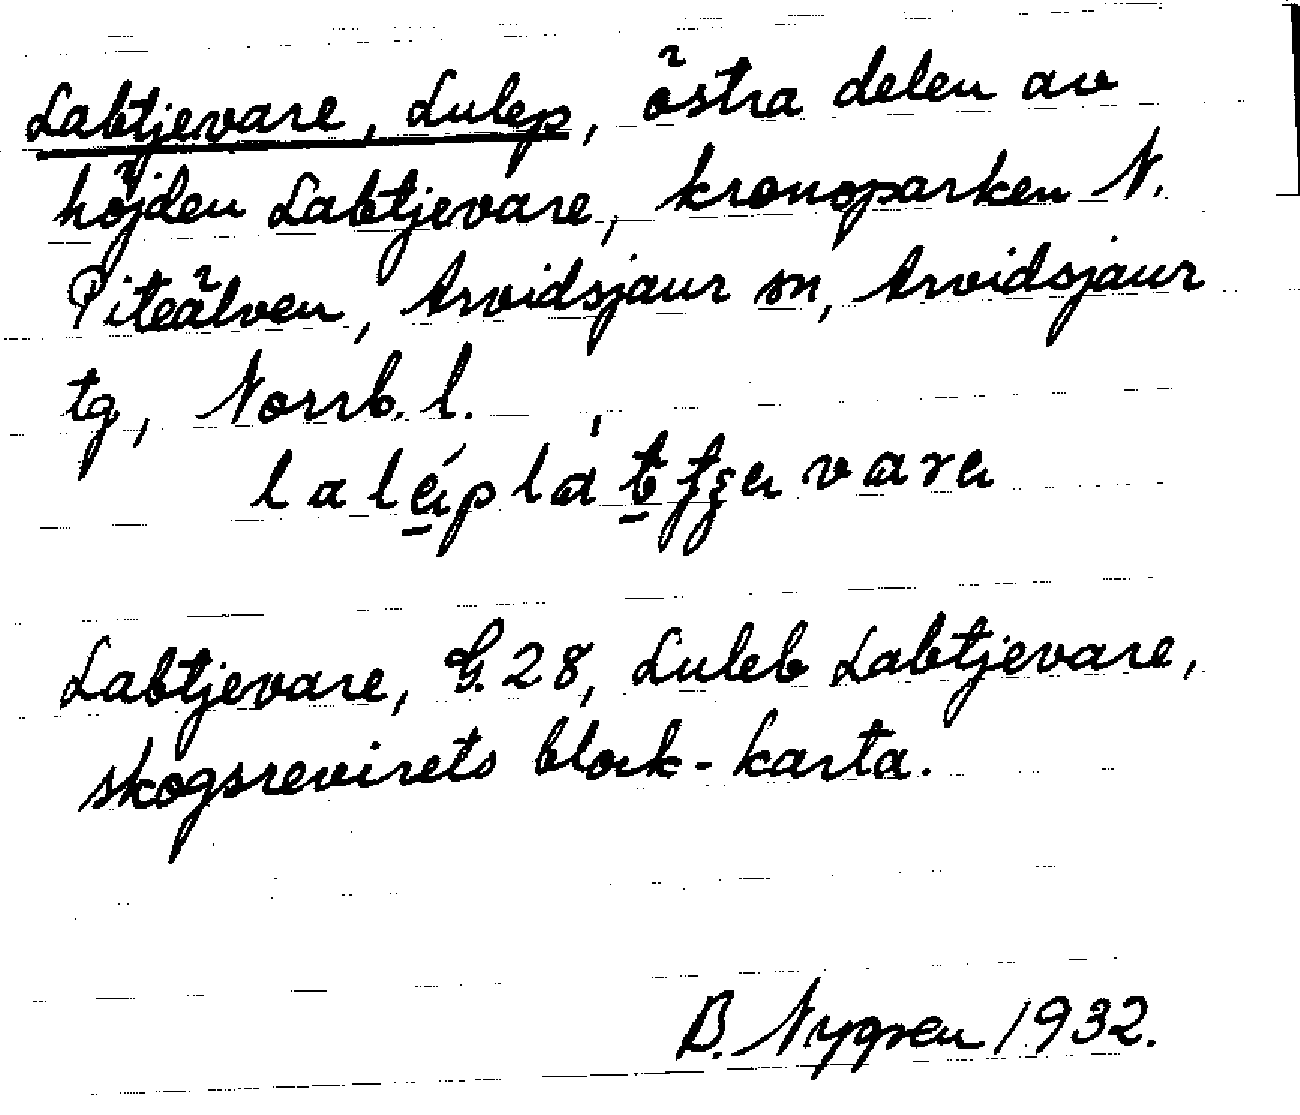 Labtjevare, Lulep, östra delen av
höjden Labtjevare, kronoparken N.
Piteälven, Arvidsjaur sn, Arvidsjaur
tg, Norrb. l.
Labtjevare, G. 28, Luleb Labtjevare,
skogsrevirets block-karta.
B. Nygren 1932.